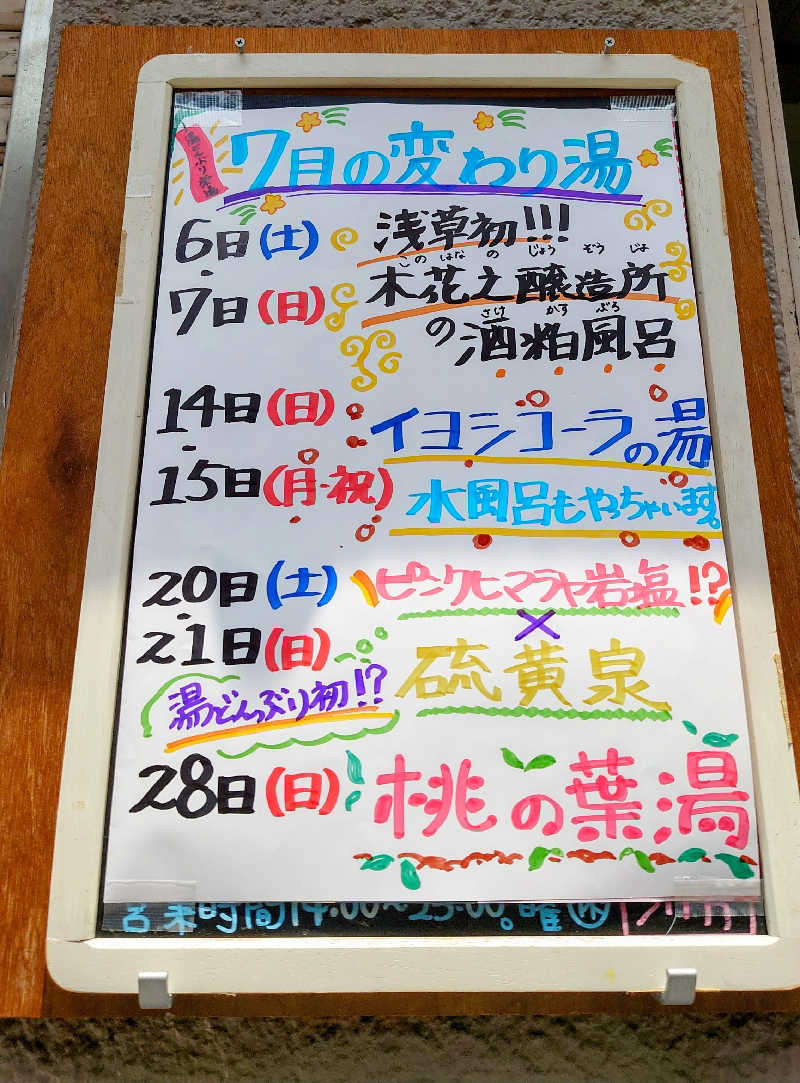 7月の変わり湯
6日(土)
・
7日(日)
浅草初!!!
このはなのじょうぞうじょ
木花之醸造所
さけかすぶろ
の酒粕風呂
14日(日)
・
15日(月・祝)
イヨシコーラの湯
水風呂もやっちゃいます。
20日(土)
・
21日(日)
湯どんぶり初!?
ピンクヒマラヤ岩塩!?
×
硫黄泉
28日(日)
桃の葉湯
営業時間14:00~25:00。